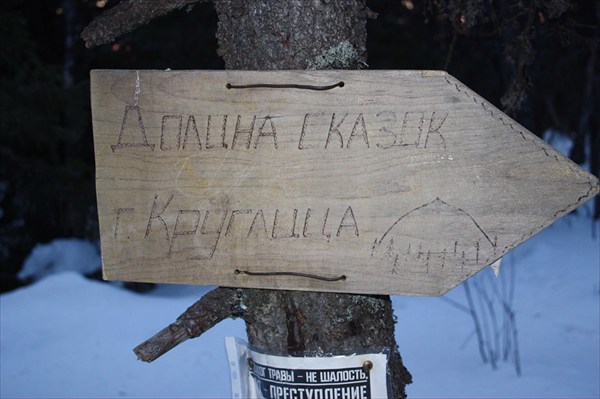 Долина сказок
г. Круглица
травы - не шалость,
- преступление